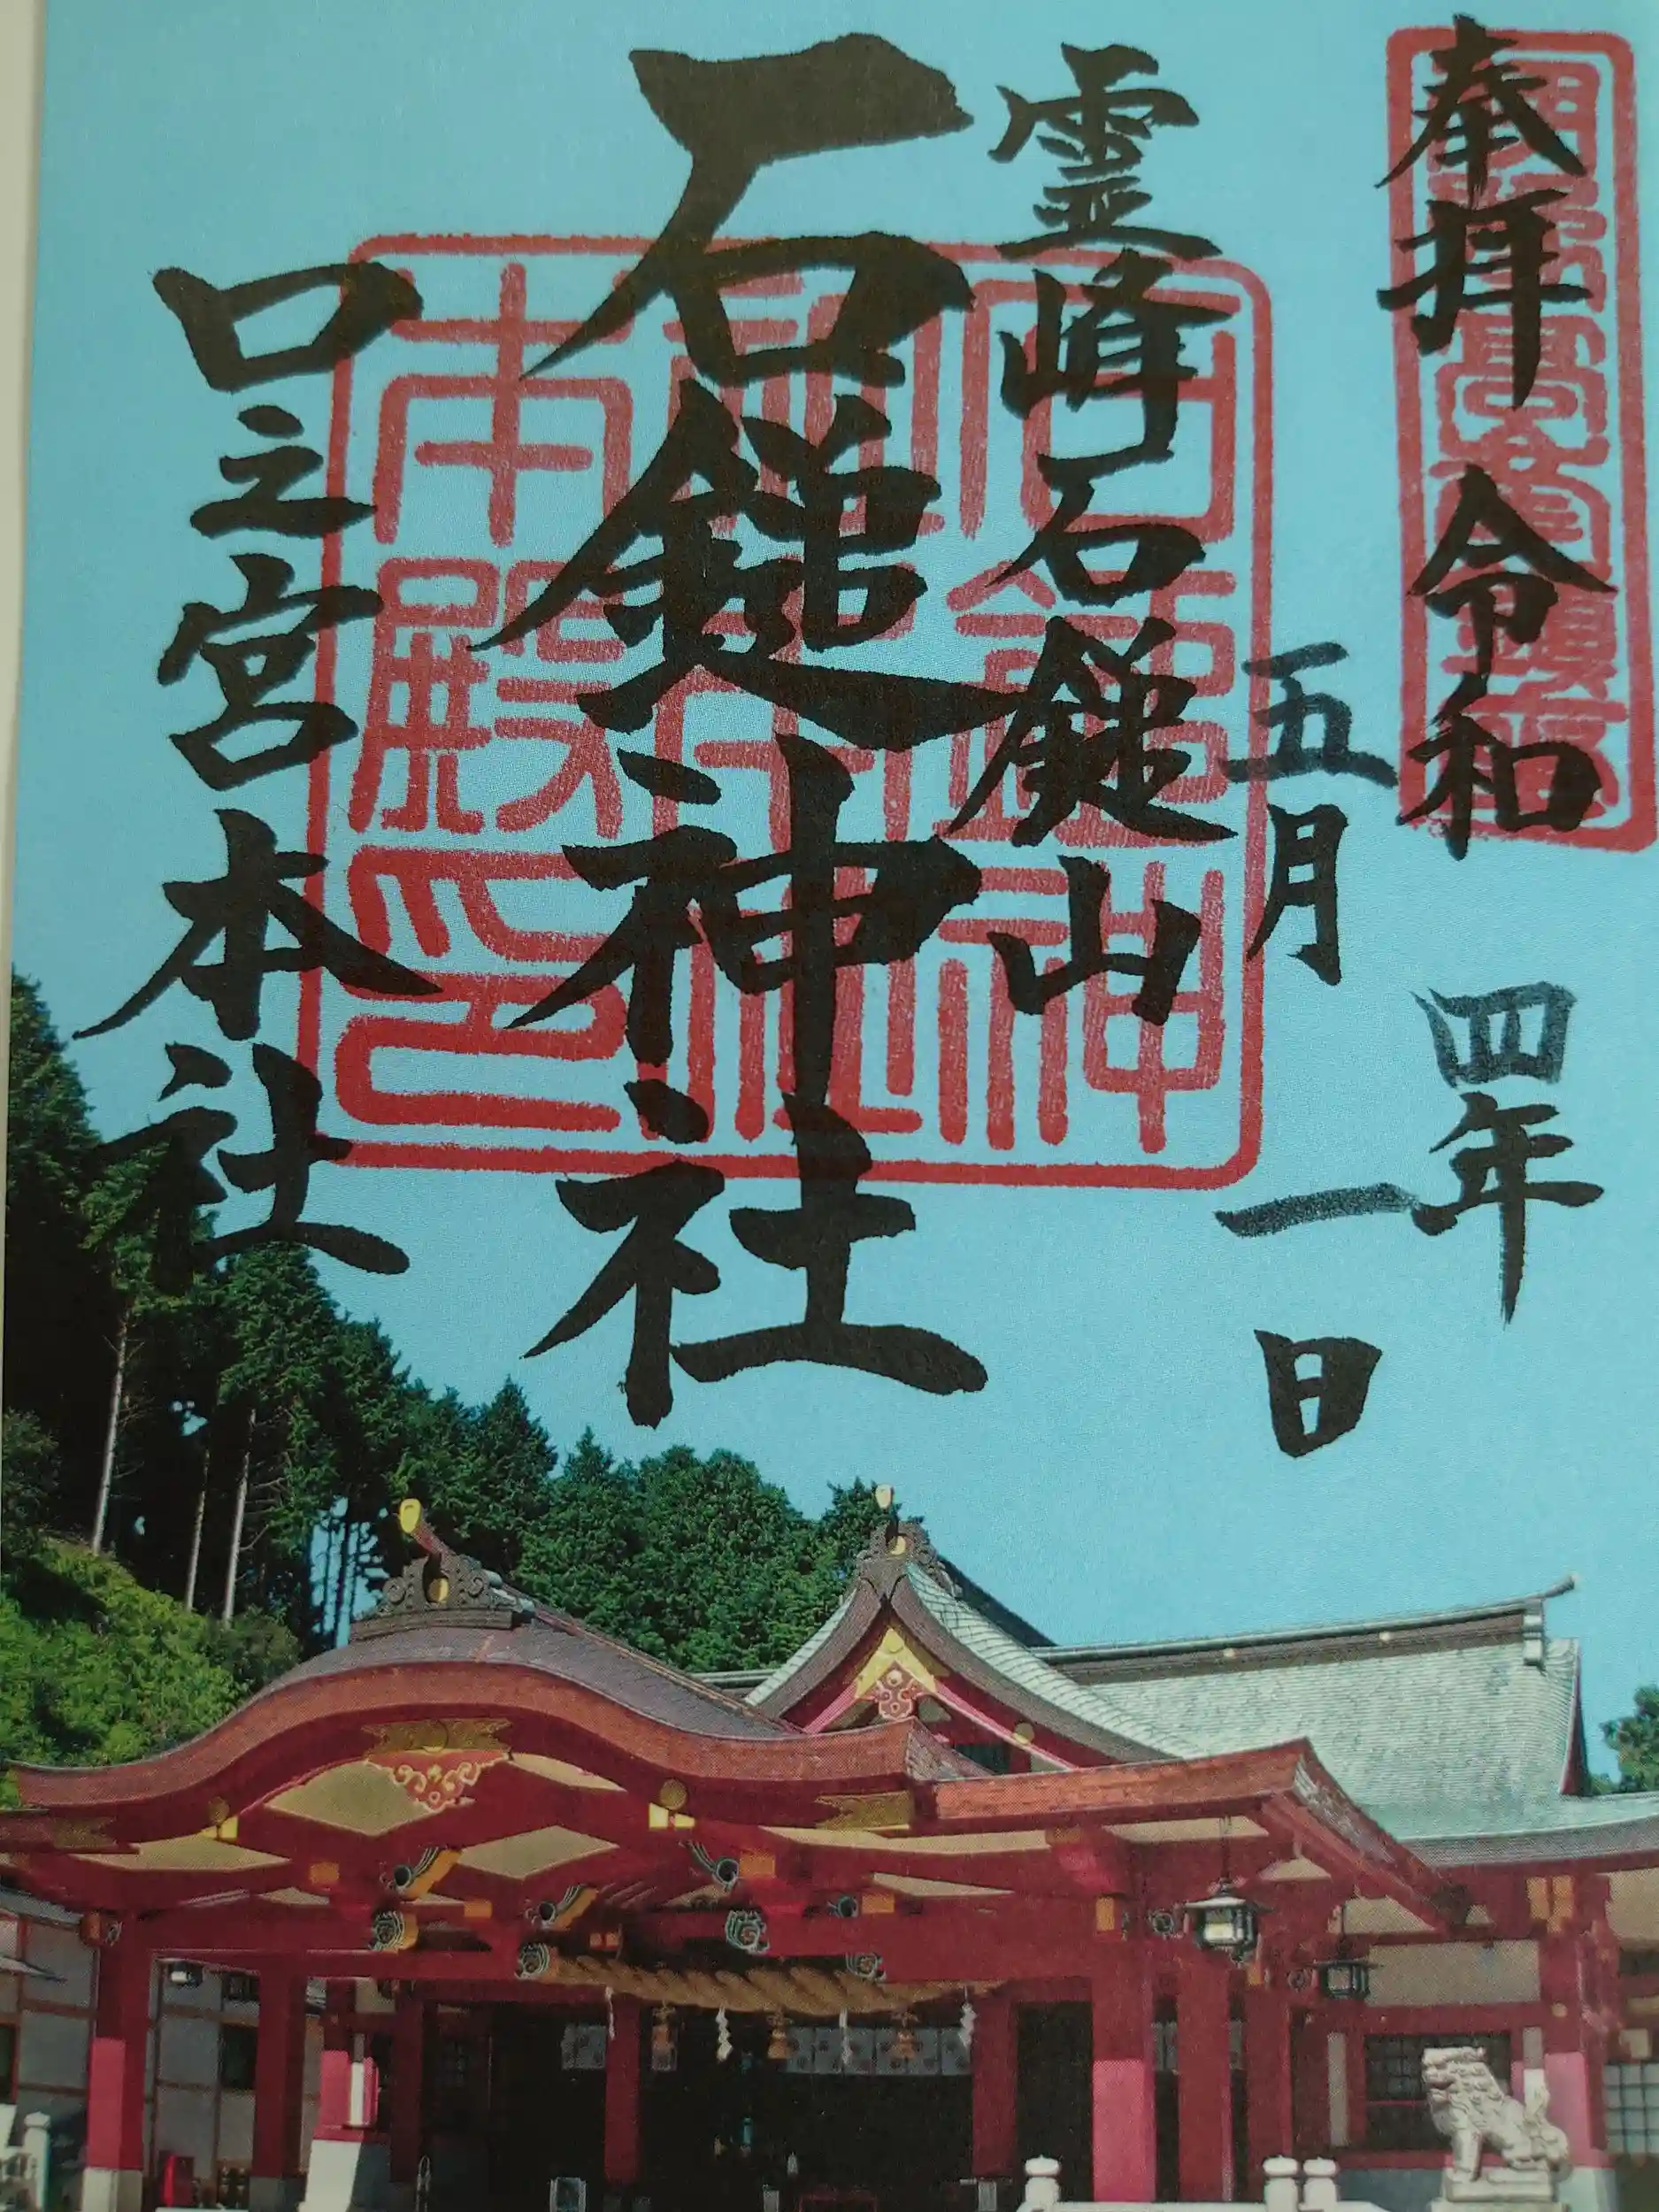 奉拝 令和四年
五月一日
霊峰石鎚山
石鎚神社
口之宮本社
石鎚神社口之宮本殿印